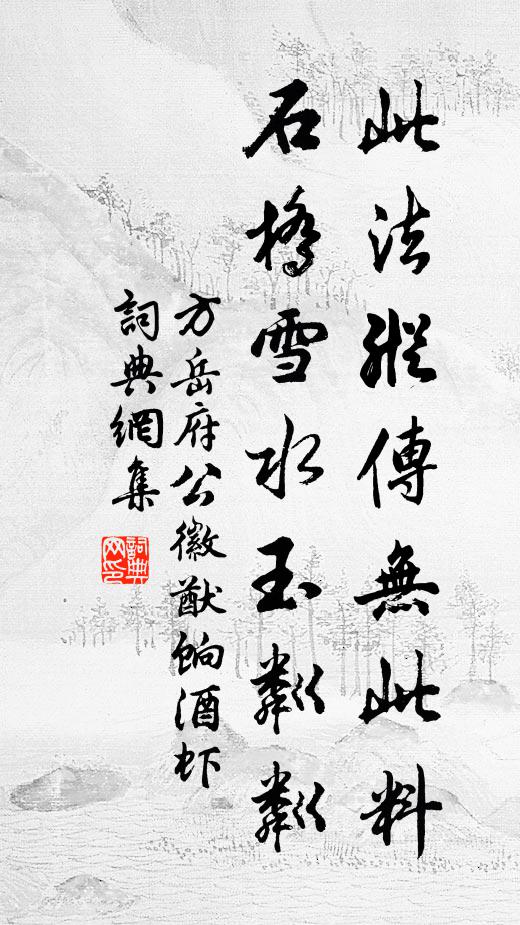 此法縱傳無此料
石橋雪水玉粼粼
方岳府公徽猷餉酒虾
詞典網集
詞典
网印